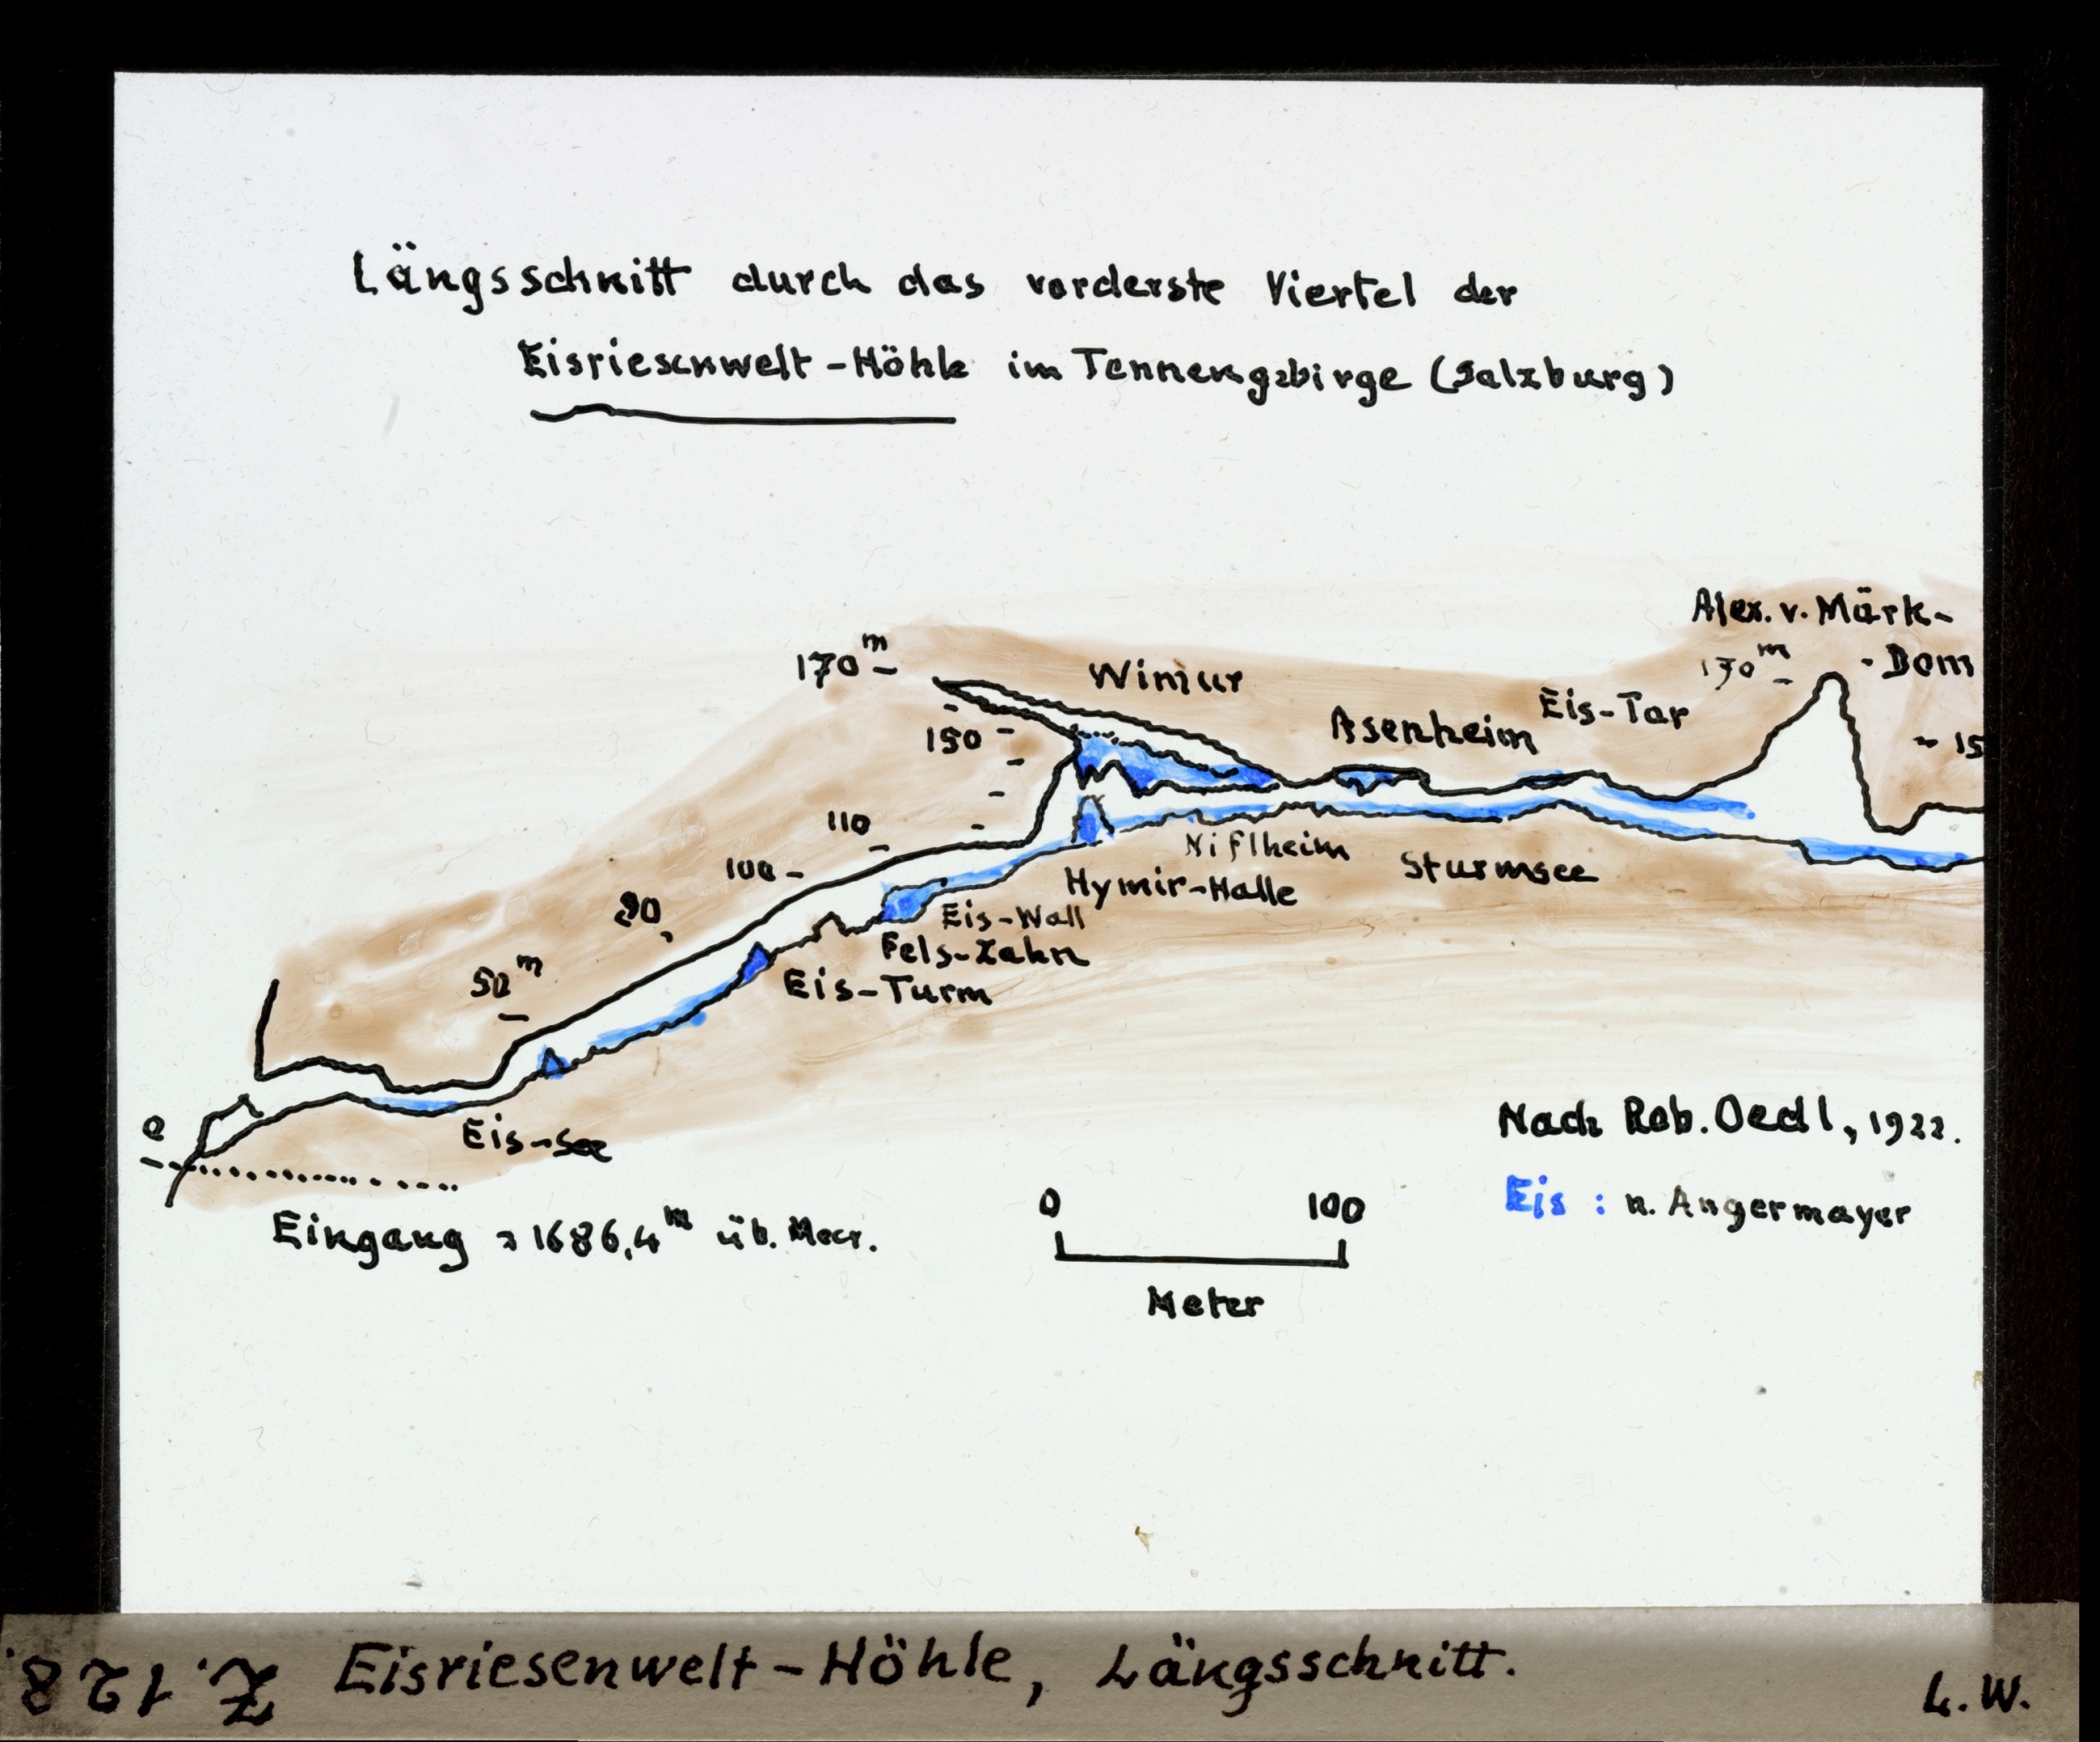 Längsschnitt durch das vorderste Viertel der
Eisriesenwelt-Höhle im Tennengebirge (Salzburg)
Alex. v. Märk-
-Dom
170m
170m
Wimur
Eis-Tor
Asenheim
150
15
110
100
Niflheim
Sturmsee
Hymir-Halle
90
Eis-Wall
Fels-Zahn
50m
Eis-Turm
Eis-see
e
Nach Rob. Oedl, 1922.
Eis: n. Angermayer
Eingang = 1686,4m üb. Meer.
0 100
Meter
Z. 128.
Eisriesenwelt-Höhle, Längsschnitt.
L. W.